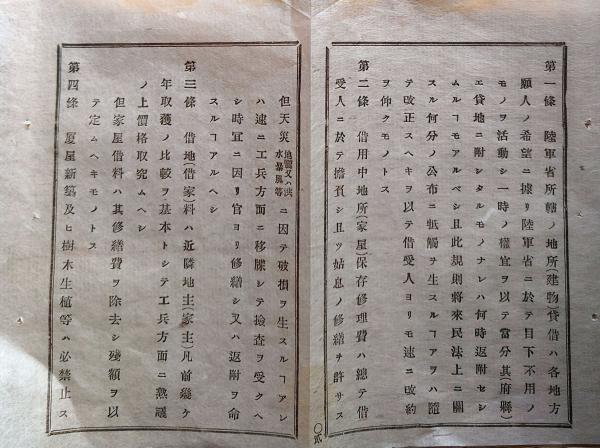 第一條 陸軍省所轄ノ地所(建物)貸借ハ各地方
願人ノ希望ニ據リ陸軍省ニ於テ目下不用ノ
モノヲ活動シ一時ノ權宜ヲ以テ當分其(府縣)
エ貸地ニ附シタルモノナレハ何時返附セシ
ムルヿモアルベシ且此規則將來民法上ニ關
スル何分ノ公布ニ牴觸ヲ生スルヿアラハ隨
テ改正スヘキヲ以テ借受人ヨリモ速ニ改約
ヲ仰クモノトス
第二條 借用中地所(家屋)保存修理費ハ總テ借
受人ニ於テ擔負シ且ツ姑息ノ修繕ヲ許サス
〇貳
但天災地震又ハ洪水暴風等ニ因テ破損ヲ生スルヿアレ
ハ速ニ工兵方面ニ移牒シテ撿査ヲ受クヘ
シ時宜ニ因リ官ヨリ修繕シ又ハ返附ヲ命
スルヿアルヘシ
第三條 借地(借家)料ハ近隣地主(家主)凡前幾ケ
年取獲ノ比較ヲ基本トシテ工兵方面ニ熟議
ノ上價格取究ムヘシ
但家屋借料ハ其修繕費ヲ除去シ殘額ヲ以
テ定ムヘキモノトス
第四條 厦屋新築及ヒ樹木生植等ハ必禁止ス